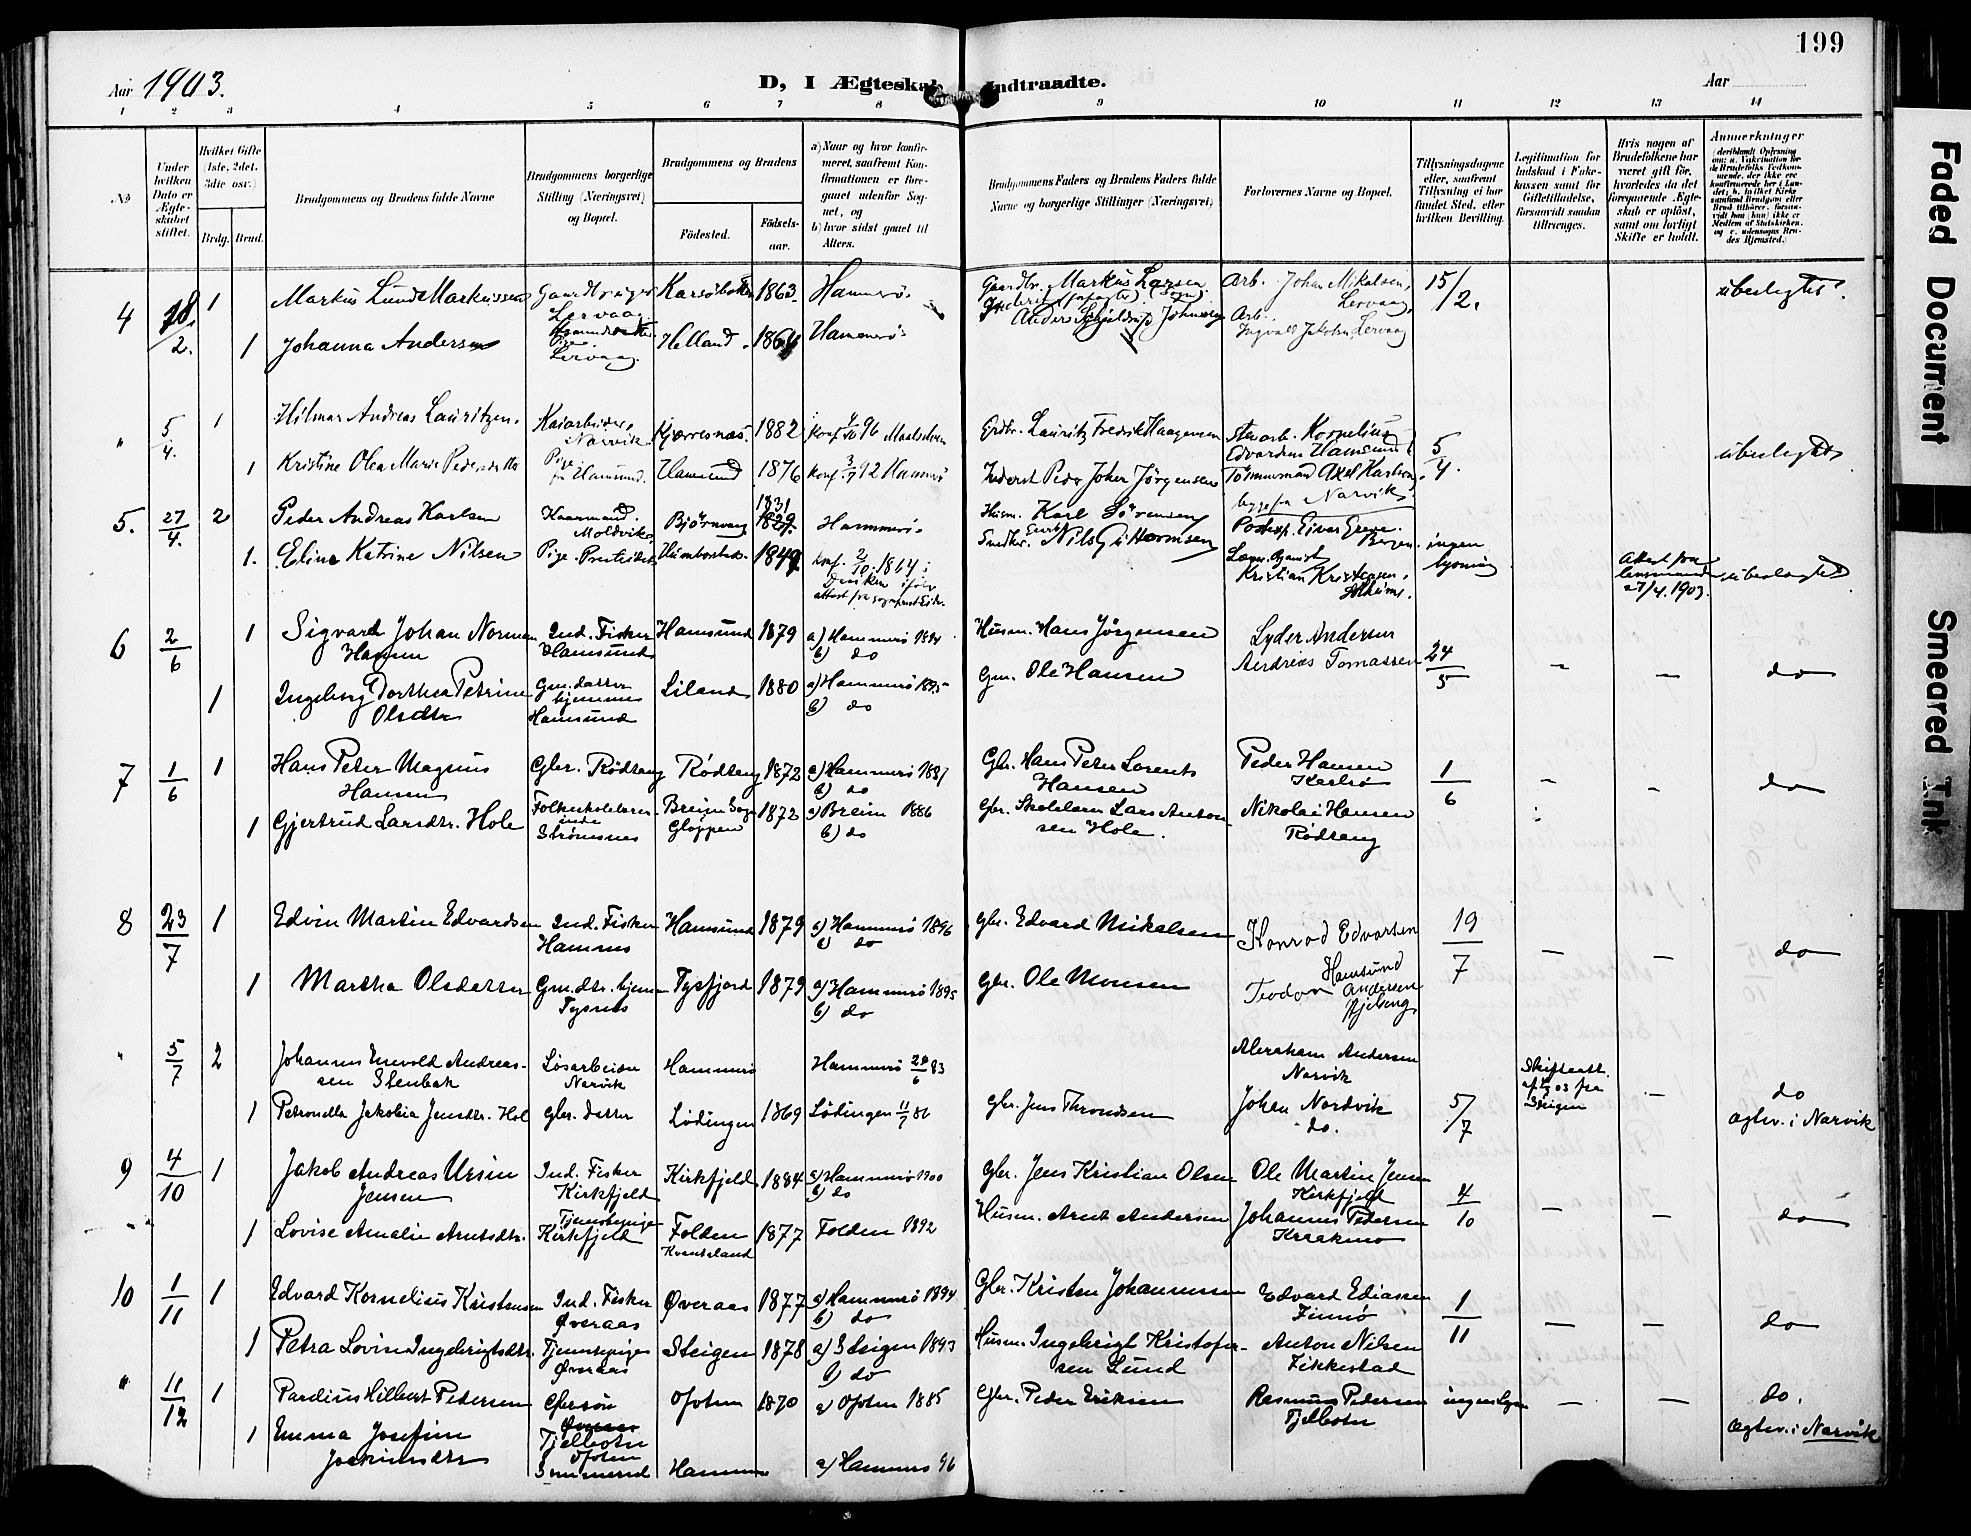 199
Aar 1903.
D, I Ægteskab Indtraadte.
Aar
1 2 3 4 5 6 7 8 9 10 11 12 13 14
№
Under hvilken Dato er Ægteskabet stiftet.
Hvilket Gifte (1ste, 2det, 3die osv.)
Brdg. Brud.
Brudgommens og Brudens fulde Navne
Brudgommens borgerlige Stilling (Næringsvei) og Bopæl.
Brudgommens og Brudens
Fødested.
Fødselsaar.
a) Naar og hvor konfirmeret, saafremt Konfirmationen er foregaaet udenfor Sognet, og
b) hvor sidst gaaet til Alters.
Brudgommens Faders og Brudens Faders fulde Navne og borgerlige Stillinger (Næringsvei)
Forlovernes Navne og Bopæl.
Tillysningsdagene eller, saafremt Tillysning ei har fundet Sted, efter hvilken Bevilling.
Legitimation for Indskud i Fakekassen samt for Giftetilladelse, forsaavidt saadan tiltrænges.
Hvis nogen af Brudefolkene har været gift før, hvorledes da det foregaaende Ægteskab er opløst, samt om lovligt Skifte er holdt.
Anmerkninger
4 18/2. 1 Markus Lund Markussen Gaardbruger Lervaag 1863. Hammerø. Gaardbr. Markus Larsen Arb. Johan Mikalsen, Lervaag 15/2. ubeslegtet.
1 Johanna Andersen Pige Lervaag Helland. Hammerø Arb. Ingvald Jakobsen, Lervaag
" 5/4. 1 Hilmar Andreas Lauritzen. Kaiarbeider, Narvik Kjærresnæs. 1882 Konf. 4/10 96 Maalselven Grdbr. Lauritz Fredrik Haagensen Kornelius Edvardsen Hamsund 5/4. ubeslegtet
1 Kristine Olea Marie Pedersdatter Pige fra Hamsund. Hamsund 1876 Konf. 3/7 92 Hammerø Inderst Peder Johan Jörgensen Tömmermand Axel Karlson, begge fra Narvik
5. 27/4. 2 Peder Andreas Karlsen Kaarmand. Moldvik. Bjørnvaag 1831 Hammerø. Husm. Karl Sörensen Postexp. Einar Greve. Bergen. ingen lysning
1. Eline Katrine Nilsen Pige. Prestesletten 1849 Konf. 2/10 1864 Kristian Kristensen, Attest fra lensmanden 27/4. 1903. ubeslegtet
6 2/6 1 Sigvard Johan Norman Hansen Ind. Fisker Hamsund Hamsund 1879 a) Hammerø 1894 b) do Husm. Hans Jörgensen Lyder Andersen 24/5 – – do
1 Ingeborg Dorthea Petrine Olsdtr Gm. datter hjemme Hamsund Liland 1880 a) Hammerø 1895 b) do Gm. Ole Hansen Andreas Tomassen
7 1/6 1 Hans Peter Magnus Hansen Gbr. Rødtang Rødtang 1872 a) Hammerø 1887 b) do Gbr. Hans Peter Lorents Hansen Peder Hansen Karlsø 1/6 – – do
1 Gjertrud Larsdtr. Hole Folkeskolelærerinde Strømsnes Breim Sogn Gloppen 1872 a) Breim 1886 b) do Gbr. Skolelærer Lars Antonsen Hole. Nikolai Hansen Rødtang
8 23/7 1 Edvin Martin Edvardsen Ind. Fisker Hamnes Hamsund 1879 a) Hammerø 1896 b) do Gbr. Edvard Mikalsen Konrad Edvartsen Hamsund 19/7 – – do
1 Martha Olsdatter Gm. dtr. hjemme Tysnes Tysfjord 1879 a) Hammerø 1895 b) do Gbr. Ole Monsen Teodor Andersen
" 5/7 2 Johannes Enevold Andreassen Stenbak Løsarbeider Narvik Hammerø Hammerø 83 Abraham Andersen Narvik Skifteatt. fra Steigen – do
1 Petronella Jakobia Jensdtr. Hol Gbr. datter Lødingen 1869 Lødingen 11/7 86 Gbr. Jens Throndsen Johan Nordvik do. 5/7 Ægtev. i Narvik
9 4/10 1 Jakob Andreas Ursin Jensen Ind. Fisker Kirkfjeld Kirkfjeld 1884 a) Hammerø 1900 b) do Gbr. Jens Kristian Olsen Ole Martin Jensen Kirkfjeld 4/10 – – do
1 Lovise Amalie Arntsdtr. Tjenestepige Kirkfjeld Folden 1877 Folden 1892 Husm. Arnt Andersen Johannes Pedersen Kraakmo
10 1/11 1 Edvard Kornelius Kristensen Ind. Fisker Øveraas Øveraas 1877 a) Hammerø 1894 b) do Gbr. Kristen Johannessen Edvard Ediassen Finnø 1/11 – – do
1 Petra Lovise Ingebrigtsdtr. Tjenestepige Øveraas Steigen 1878 a) Steigen 1893 b) do Husm. Ingebrigt Kristofersen Lund Anton Nilsen Zikkestad
" 11/12 1 Pareliüs Hilbert Pedersen Tjelbotn Ofoten Ofoten 1870 a) Ofoten 1885 Gbr. Peder Eriksen Rasmus Pedersen Tjelbotn – – do.
1 Emma Josefine Joakimsdtr Hammerø a) Hammerø 96 Ægtev. i Narvik
Faded Document
Smeared Ink